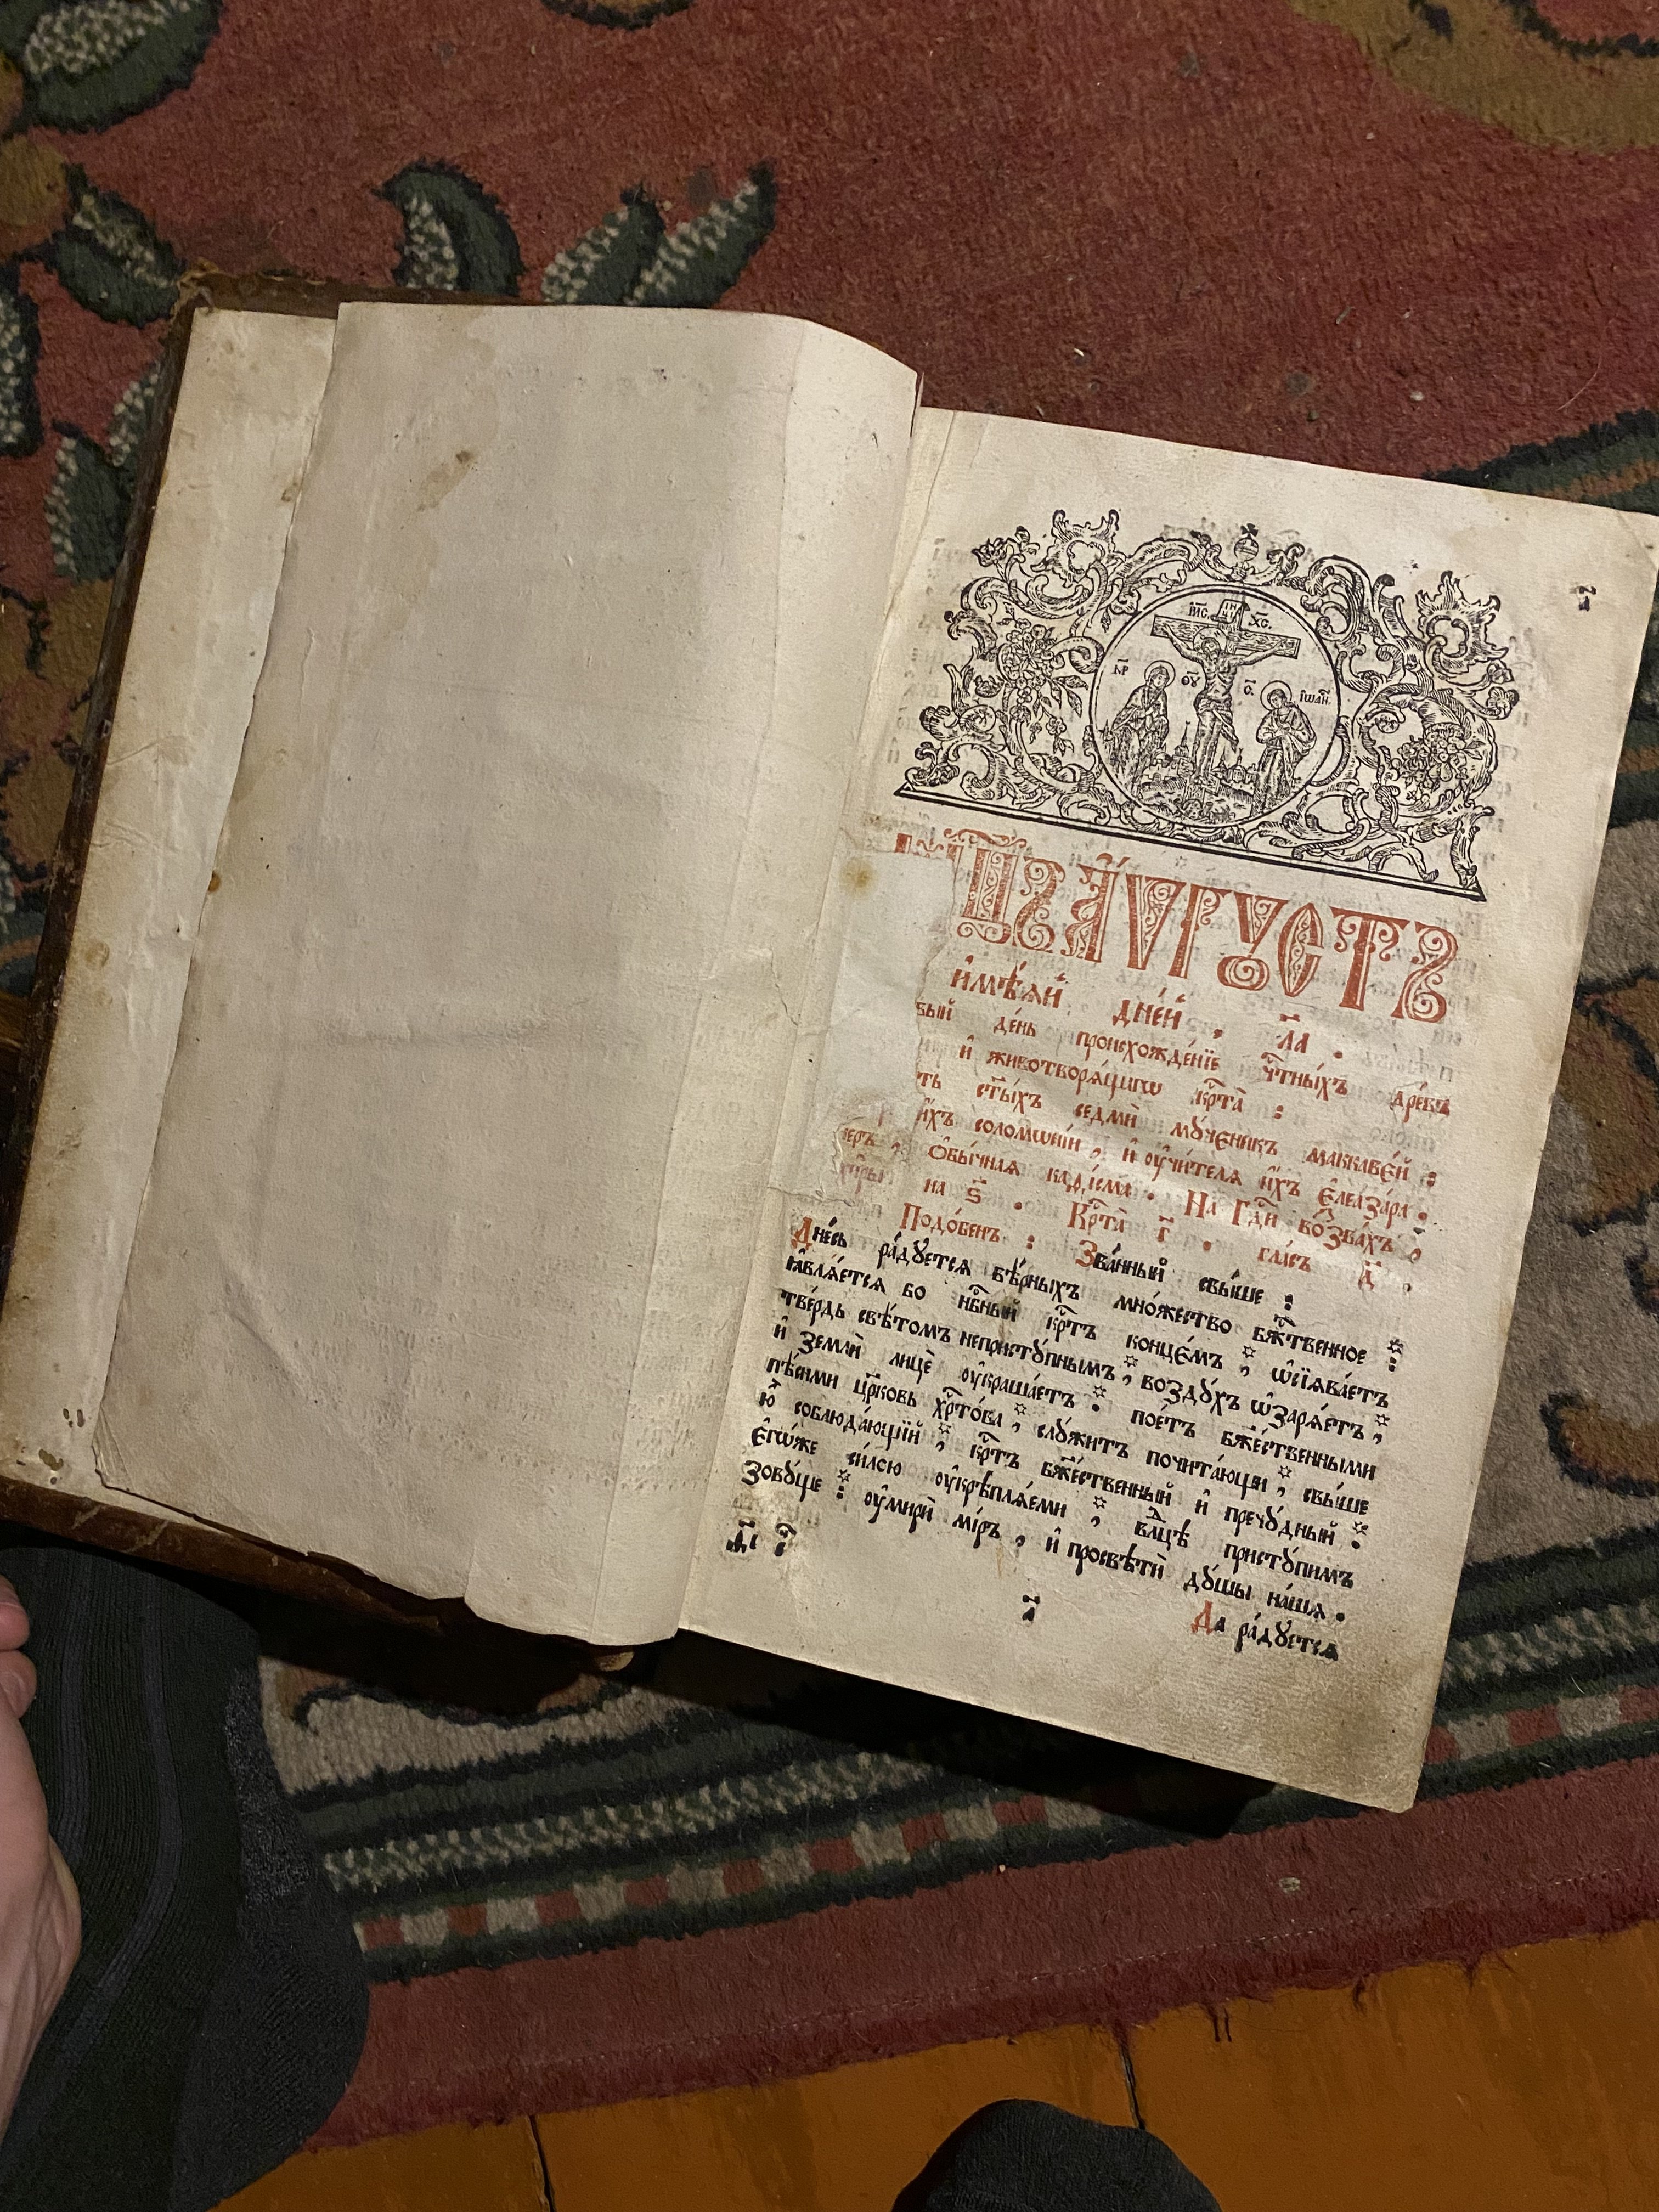 а҃
І҆И҃С І҆Н҃ЦІ Х҃С.
М҃Р Ѳ҃У О҃. І҆ѠА҃Н.
А҆́ѴГУСТЪ
и҆мѣ́ѧй дне́й , л҃а .
вый де́нь происхожде́нїе чⷭ҇тны́хъ дре́въ
и҆ животворѧ́щагѡ крⷭ҇та̀ :
ст҃ы́хъ седмѝ мꙋ́ченикъ маккаве́й :
и҆́хъ соломѡні́и , и҆ ᲂу҆чи́телѧ и҆́хъ є҆леаза́ра .
Ѻ҆бы́чнаѧ каѳі́сма . На Гдⷭ҇и воззва́хъ
на ѕ҃ . Крⷭ҇та̀ г҃ . гла́съ д҃ .
Подо́бенъ : Зва́нный свы́ше :
Дне́сь ра́дꙋетсѧ вѣ́рныхъ мно́жество бж҃твенное :
ꙗ҆влѧ́етсѧ бо нб҃ный крⷭ҇тъ конце́мъ , ѡ҆сїѧва́етъ
тве́рдь свѣ́томъ непристꙋ́пнымъ , во́здꙋхъ ѡ҆зарѧ́етъ ,
и҆ землѝ лицѐ ᲂу҆краша́етъ : пое́тъ бжⷭ҇е́ственными
пѣ́сньми цр҃ковь хрⷭ҇то́ва , слꙋ́житъ почита́ющи , свы́ше
ю҆̀ соблюда́ющїй , крⷭ҇тъ бжⷭ҇е́ственный и҆ пречꙋ́дный :
Є҆гѡ́же си́лою ᲂу҆крѣплѧ́еми , влⷣцѣ пристꙋ́пимъ
зовꙋ́ще : ᲂу҆мирѝ мі́ръ , и҆ просвѣтѝ дꙋ́шы на́шѧ .
а҃ Да ра́дꙋетсѧ